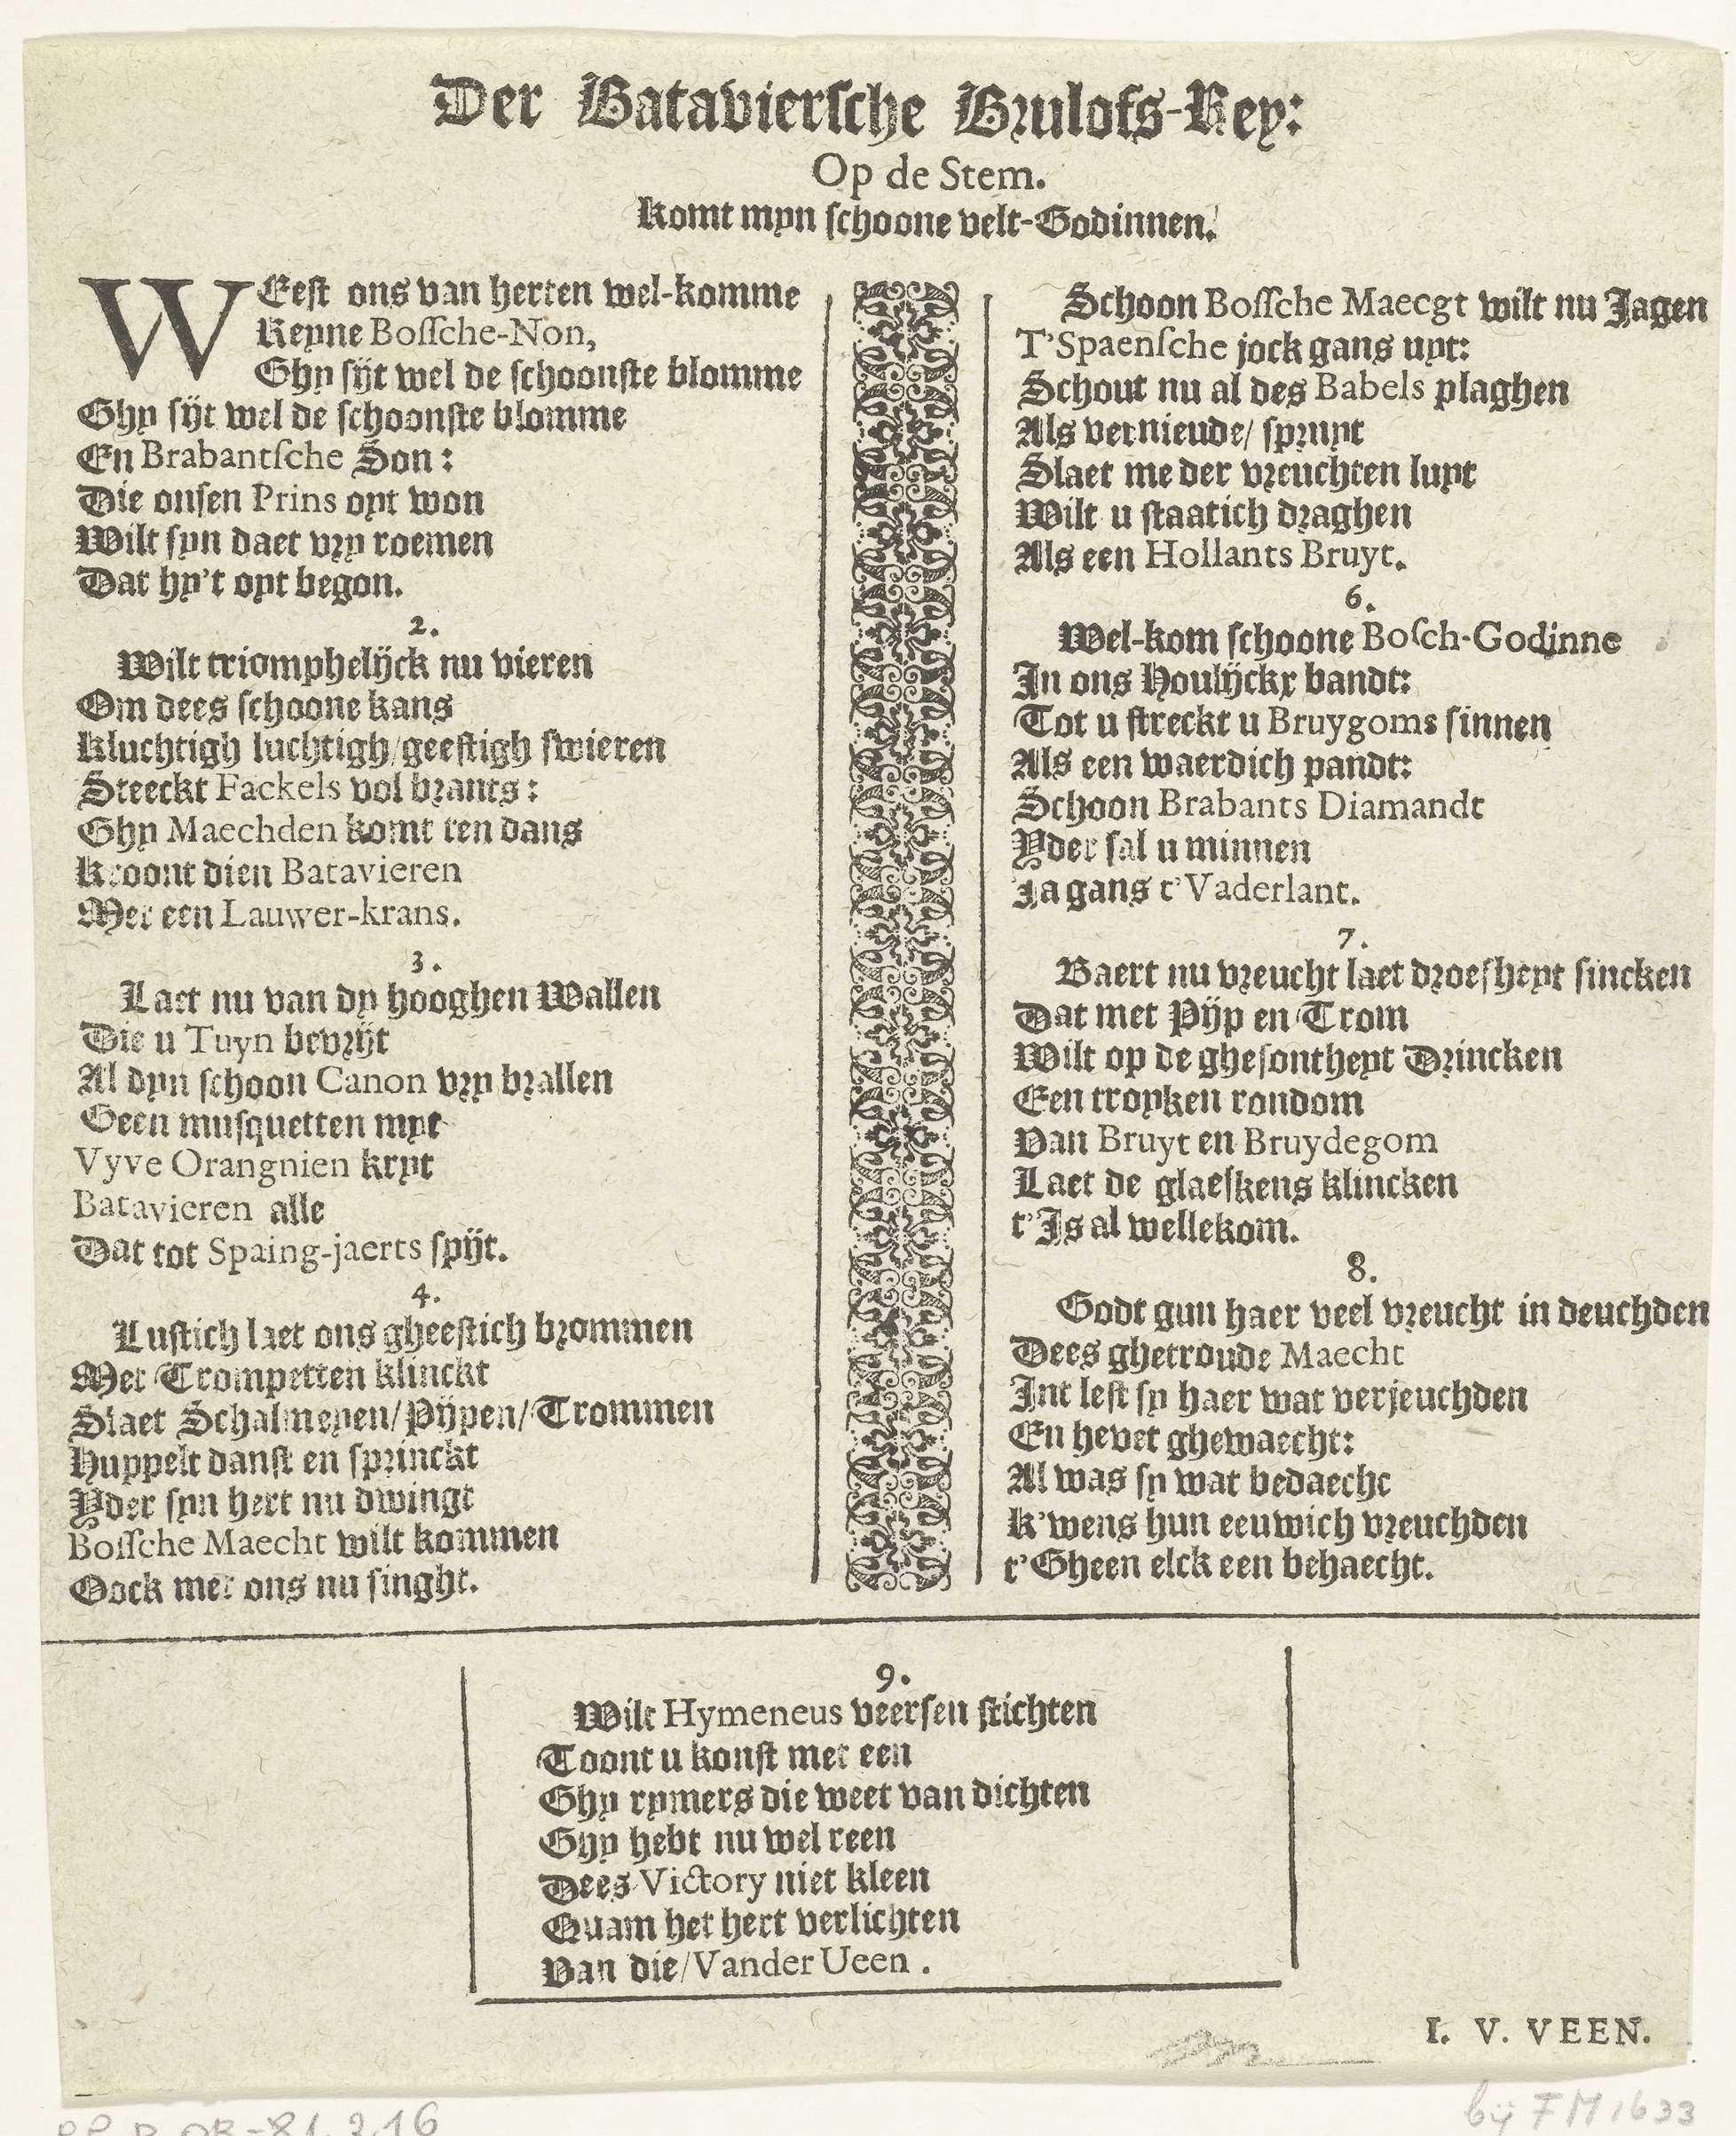 Der Bataviersche Brulofs-Rey:
Op de Stem.
Komt myn schoone velt-Godinnen.
WEest ons van herten wel-komme
Reyne Bossche-Non,
Ghy sijt wel de schoonste blomme
Ghy sijt wel de schoonste blomme
En Brabantsche Son:
Die onsen Prins oyt won
Wilt syn daet vry roemen
Dat hy't oyt begon.
2.
Wilt triomphelijck nu vieren
Om dees schoone kans
Kluchtigh luchtigh/geestigh swieren
Steeckt Fackels vol brants:
Ghy Maechden komt ten dans
Kroont dien Batavieren
Met een Lauwer-krans.
3.
Laet nu van dy hooghen Wallen
Die u Tuyn bevrijt
Al dyn schoon Canon vry brallen
Geen musquetten myt
Vyve Orangnien kryt
Batavieren alle
Dat tot Spaing-jaerts spijt.
4.
Lustich laet ons gheestich brommen
Met Trompetten klinckt
Slaet Schalmeyen/Pijpen/Trommen
Huppelt danst en sprinckt
Yder syn hert nu dwingt
Bossche Maecht wilt kommen
Oock met ons nu singht.
Schoon Bossche Maecgt wilt nu Jagen
T'Spaensche jock gans uyt:
Schout nu al des Babels plaghen
Als vernieude/ spruyt
Slaet me der vreuchten luyt
Wilt u staatich draghen
Als een Hollants Bruyt.
6.
Wel-kom schoone Bosch-Godinne
In ons Houlijckx bandt:
Tot u streckt u Bruygoms sinnen
Als een waerdich pandt:
Schoon Brabants Diamandt
Yder sal u minnen
Ja gans t'Vaderlant.
7.
Baert nu vreucht laet droefheyt sincken
Dat met Pijp en Trom
Wilt op de ghesontheyt Drincken
Een troyken rondom
Van Bruyt en Bruydegom
Laet de glaeskens klincken
t'Is al wellekom.
8.
Godt gun haer veel vreucht in deuchden
Dees ghetroude Maecht
Int lest sy haer wat verjeuchden
En hevet ghewaecht:
Al was sy wat bedaecht
K'wens hun eeuwich vreuchden
t'Gheen elck een behaecht.
9.
Wilt Hymeneus veersen stichten
Toont u konst met een
Ghy rymers die weet van dichten
Ghy hebt nu wel reen
Dees Victory niet kleen
Quam het hert verlichten
Van die/Vander Ueen.
I. V. VEEN.
bij FM 1633